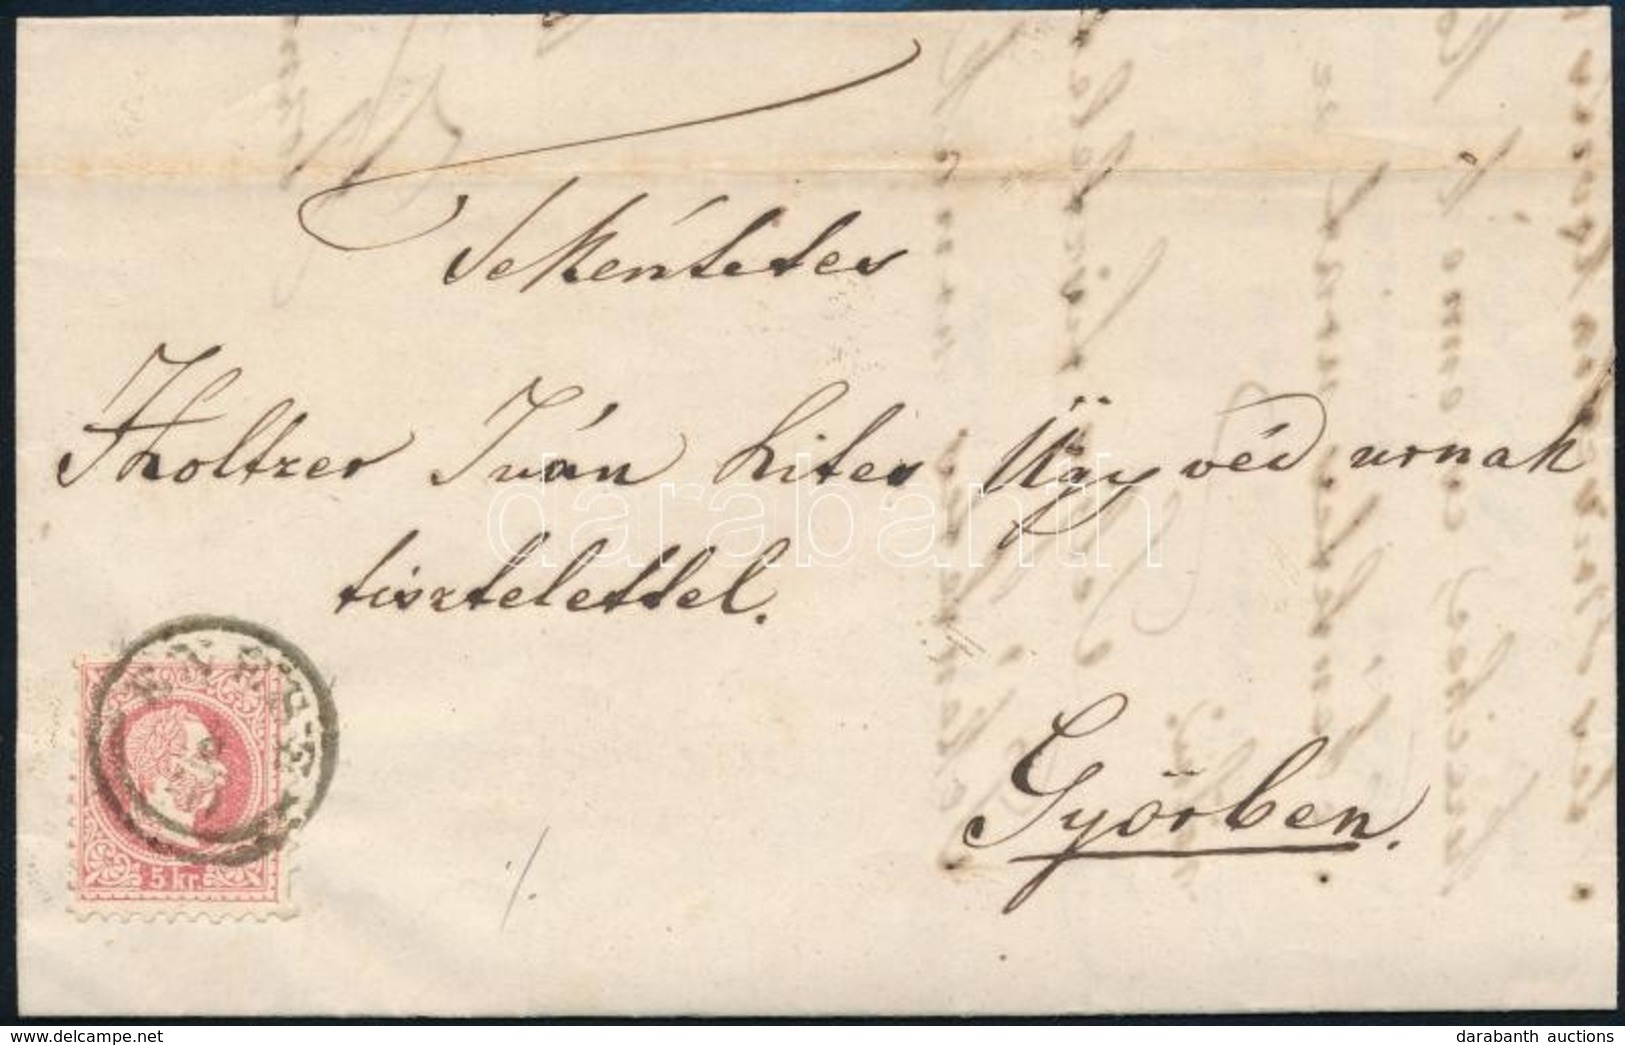 Tekéntetes
Holtzer Iván hites Ügyvéd urnak
tisztelettel.
Győrben.
5 kr.
darabanth
darabanth auctions